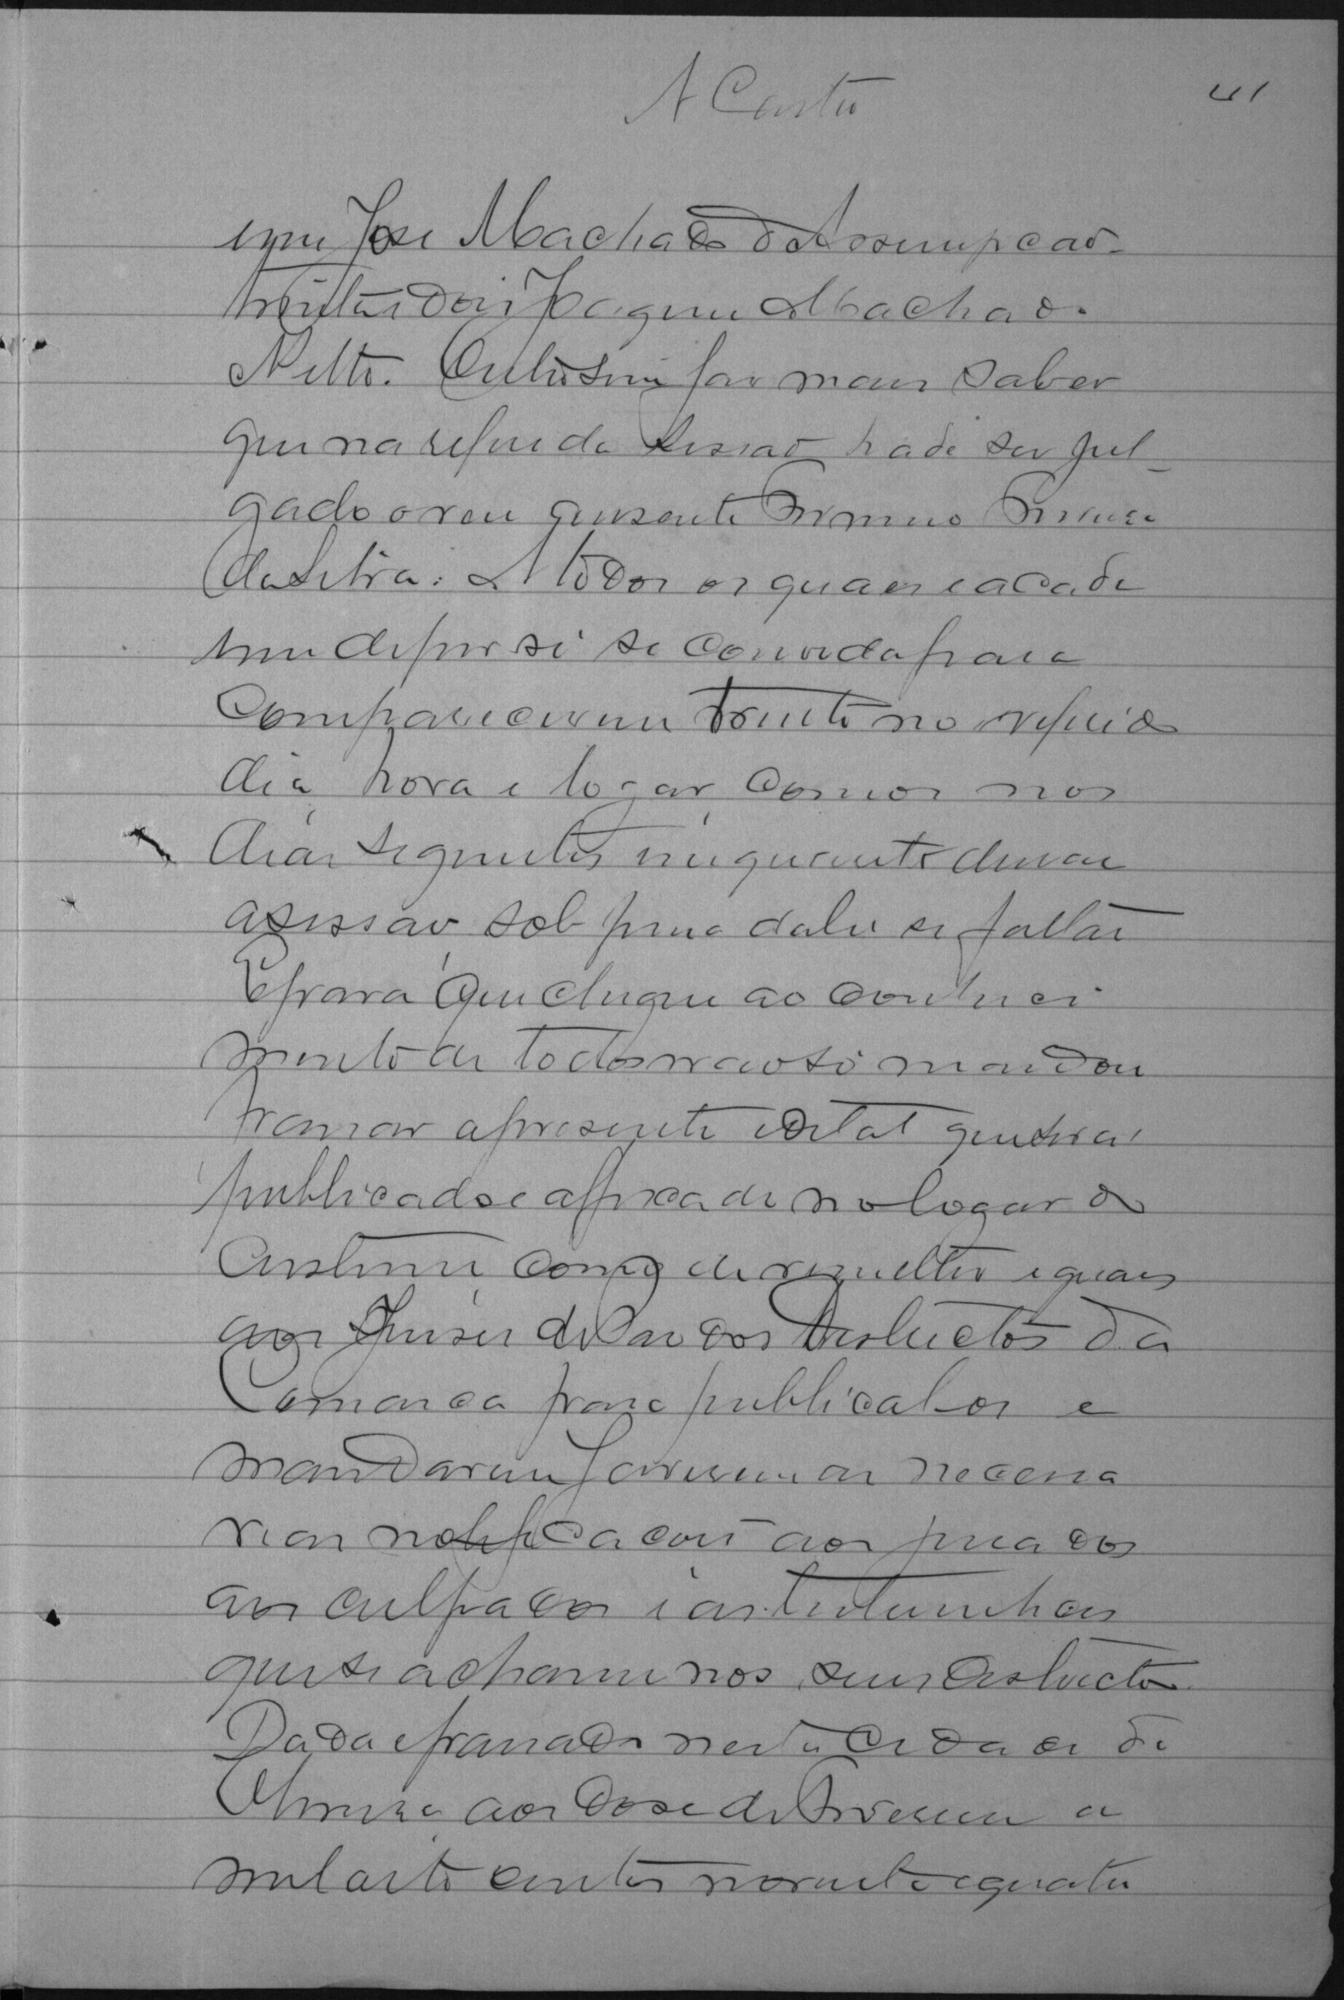 A Costa
41
e um José Machado d'Assumpcão
trinta e dois Joaquim Machado
Netto. Outrosim faz mais saber
que na referida sessão hade ser jul-
gado o reu ausente Firmino
da Silva. A todos os quaes e a cada
um de per si se convida para
comparecerem tanto no referido
dia, hora e logar como nos
dias seguintes emquanto durar
a sessão sob pena da lei se faltar
E para que chegue ao conheci
mento de todos não só mandou
passar a presente edital que será
publicado e affixado no logar do
costume como de remetter eguaes
aos Juises de Paz dos Districtos da
Comarca para publical-os e
mandarem fazerem as necessa
rias notificacões aos jurados
aos culpados e as testemunhas
que se acham nos seus districtos.
Dada e passada nesta cidade de
aos dose de Fevereiro de
mil oito centos noventa e quatro